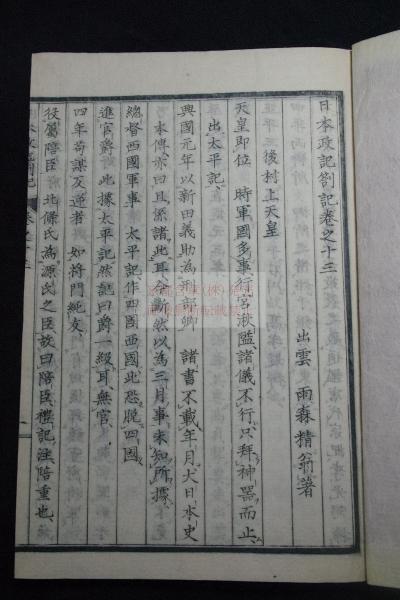 日本政記劄記卷之十三
出雲 雨森精翁著
後村上天皇
天皇即位 時軍國多事行宮湫隘諸儀不行只拜神器而止
出太平記
興國元年以新田義助為刑部卿 諸書不載年月大日本史
本傳亦曰且係諸此耳今斷然以為三月事未知所據
總督西國軍事 太平記作四國西國此恐脫四國
進官爵 此據太平記然記曰爵一級耳無官
四年苟謀反逆者 如將門純友
役屬陪臣 北條氏為源氏之臣故曰陪臣禮記注陪重也